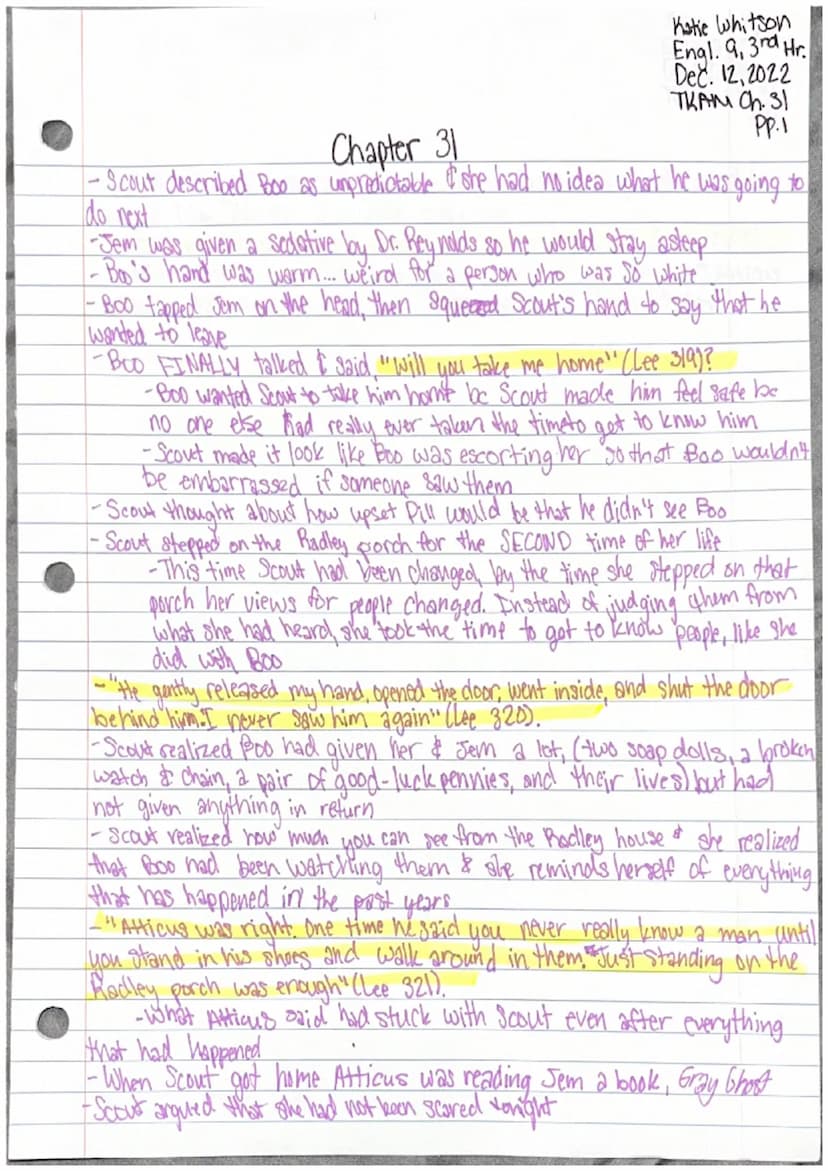 Katie Whitson
Engl. 9, 3rd Hr.
Dec. 12, 2022
TKAM Ch. 31
Pp. 1
Chapter 31
- Scout described Boo as unpredictable & she had no idea what he was going to
do next
- Jem was given a sedative by Dr. Reynolds so he would stay asleep
- Boo's hand was warm... weird for a person who was so white
- Boo tapped Jem on the head, then squeezed Scout's hand to say that he
wanted to leave
- Boo FINALLY talked & said, "Will you take me home" (Lee 319)?
- Boo wanted Scout to take him home bc Scout made him feel safe bc
no one else had really ever taken the time to get to know him
- Scout made it look like Boo was escorting her so that Boo wouldn't
be embarrassed if someone saw them
- Scout thought about how upset Dill would be that he didn't see Boo
- Scout stepped on the Radley porch for the SECOND time of her life
- This time Scout had been changed, by the time she stepped on that
porch her views for people changed. Instead of judging them from
what she had heard, she took the time to get to know people, like she
did with Boo
- "He gently released my hand, opened the door, went inside, and shut the door
behind him. I never saw him again" (Lee 320).
- Scout realized Boo had given her & Jem a lot, (two soap dolls, a broken
watch & chain, a pair of good-luck pennies, and their lives) but had
not given anything in return
- Scout realized how much you can see from the Radley house & she realized
that Boo had been watching them & she reminds herself of everything
that has happened in the past years
- "Atticus was right. One time he said you never really know a man until
you stand in his shoes and walk around in them. Just standing on the
Radley porch was enough" (Lee 321).
- What Atticus said had stuck with Scout even after everything
that had happened
- When Scout got home Atticus was reading Jem a book, Gray Ghost
- Scout argued that she had not been scared tonight